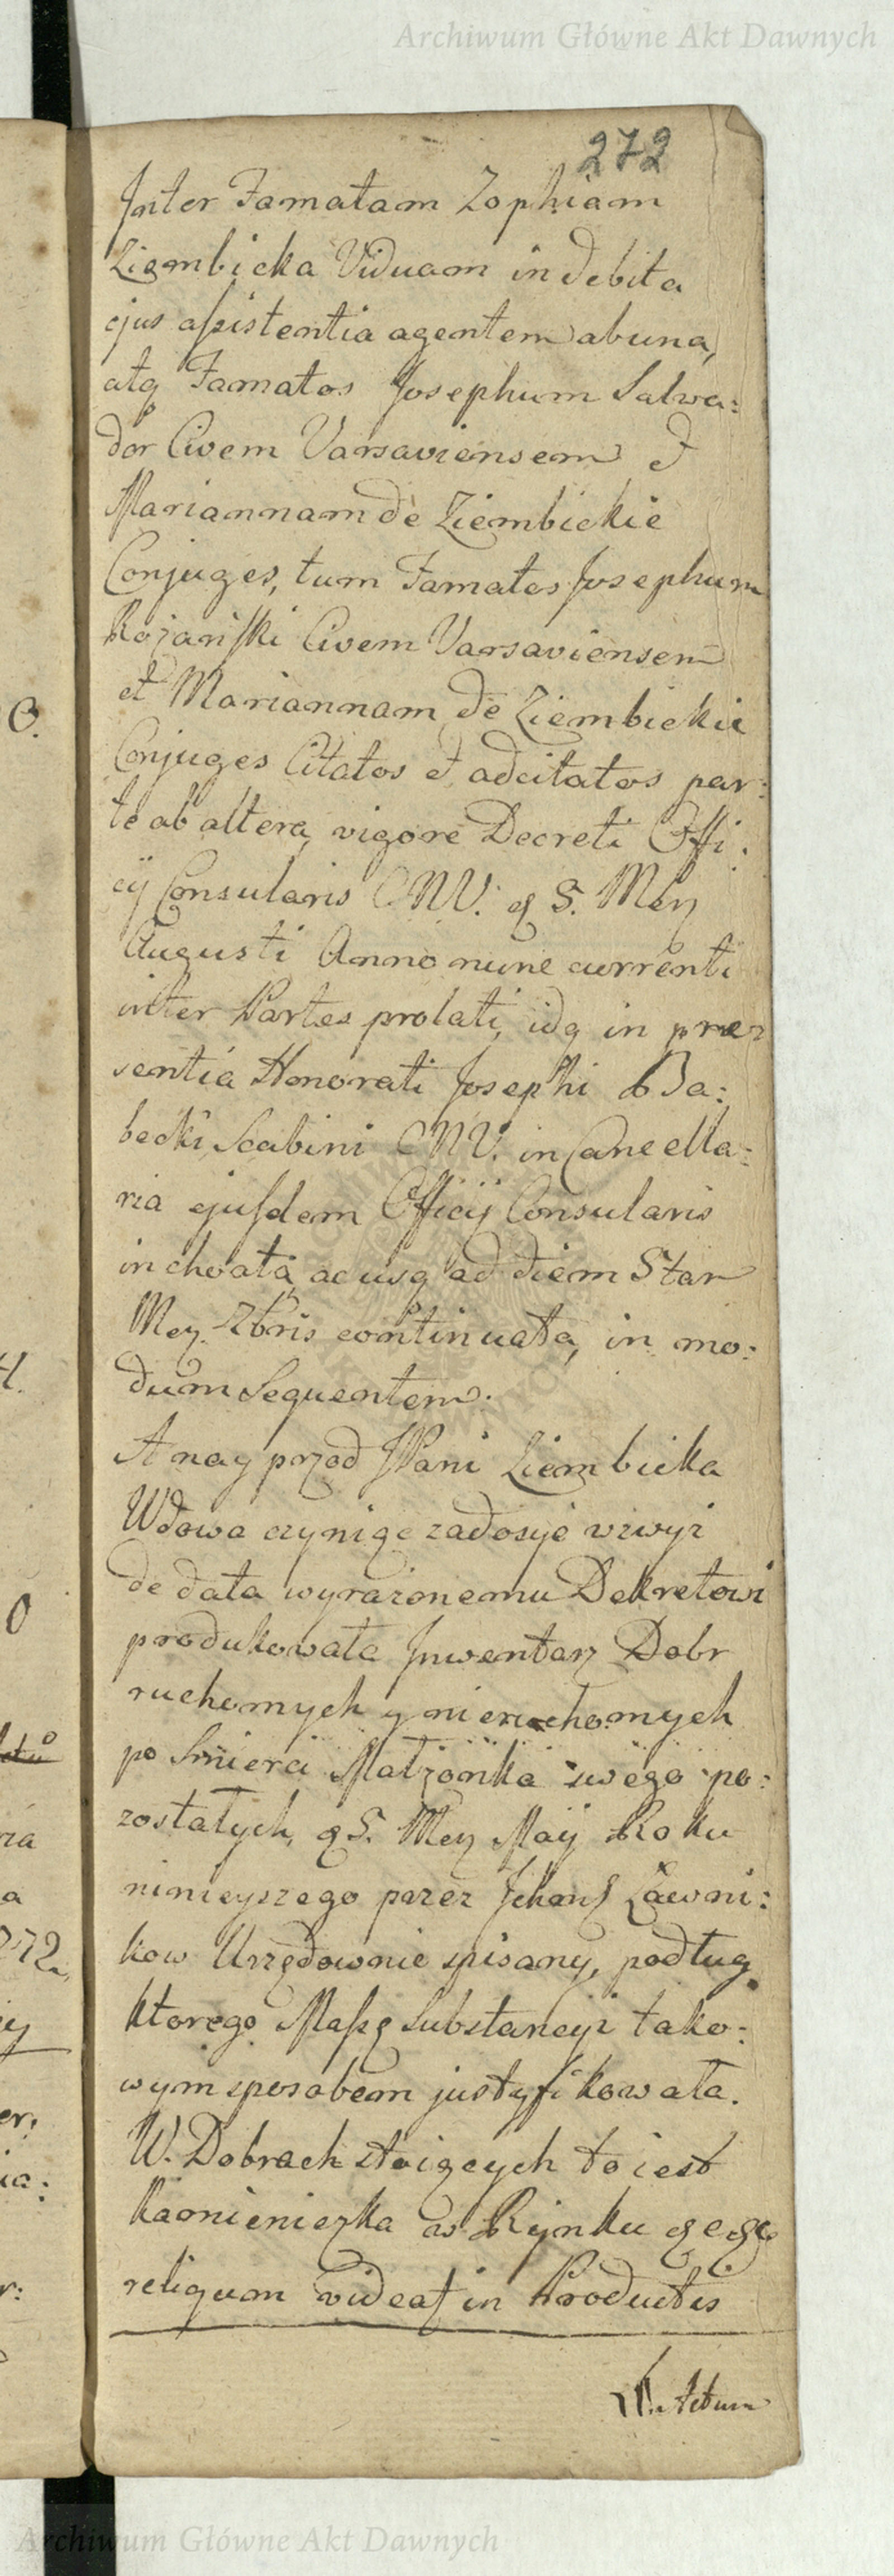 Archiwum Główne Akt Dawnych
272
Inter Famatam Zophiam
Ziembicka Viduam in debita
ejus assistentia agentem ab una,
atq Famatos Josephum Salwa:
dor Civem Varsaviensem et
Mariannam de Ziembickie
Conjuges, tum Famatos Josephum
Rojański Civem Varsaviensem
et Mariannam de Ziembickie
Conjuges Citatos et adcitatos par:
te ab altera, vigore Decreti Offi:
cij Consularis CNV. d 5. Mey
Augusti Anno nunc currenti
inter Partes prolati, idq in præ
sentia Honorati Josephi Ba:
becki Scabini CNV. in Cancella:
ria ejusdem Officij Consularis
inchoata, ac usq ad diem 5tam
Mey 7bris continuata, in mo:
dum Sequentem.
A nayprzod JPani Ziembicka
Wdowa czyniąc zadosyć wzwyz
de data wyrazonemu Dekretowi
produkowała Inwentarz Dobr
ruchomych y nieruchomych
po Smierci Małzonka swego po:
zostałych, d 5. Mey Maij Roku
ninieyszego przez Ichmć Ławni:
kow Urzędownie spisany, podług
ktorego Massę Substancyi tako:
wym sposobem justyfikowała.
W. Dobrach stoiących to iest
Kamieniczka w Rynku &c &c
reliquum videat in Productis
Actum
O.
H.
0
ria
a
272
er:
ia:
r:
Archiwum Główne Akt Dawnych